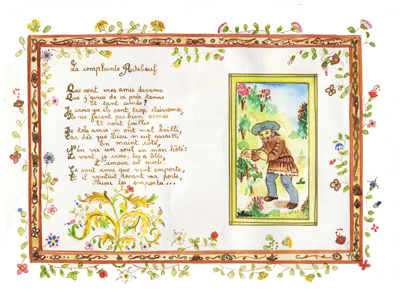 La complainte Rutebeuf
Que sont mes amis devenus
Que j'avais de si près tenus
Et tant aimés?
Je crois qu'ils sont trop clairsemés
Ils ne furent pas bien semés
Et sont faillis
De tels amis m'ont mal bailli
Car dès que Dieu m'eut assailli
En maint côté
N'en vis un seul en mon hôtel
Le vent, je crois, les a ôtés,
L'amour est morte
Ce sont amis que vent emporte,
Et il ventait devant ma porte,
Aussi les emporta...